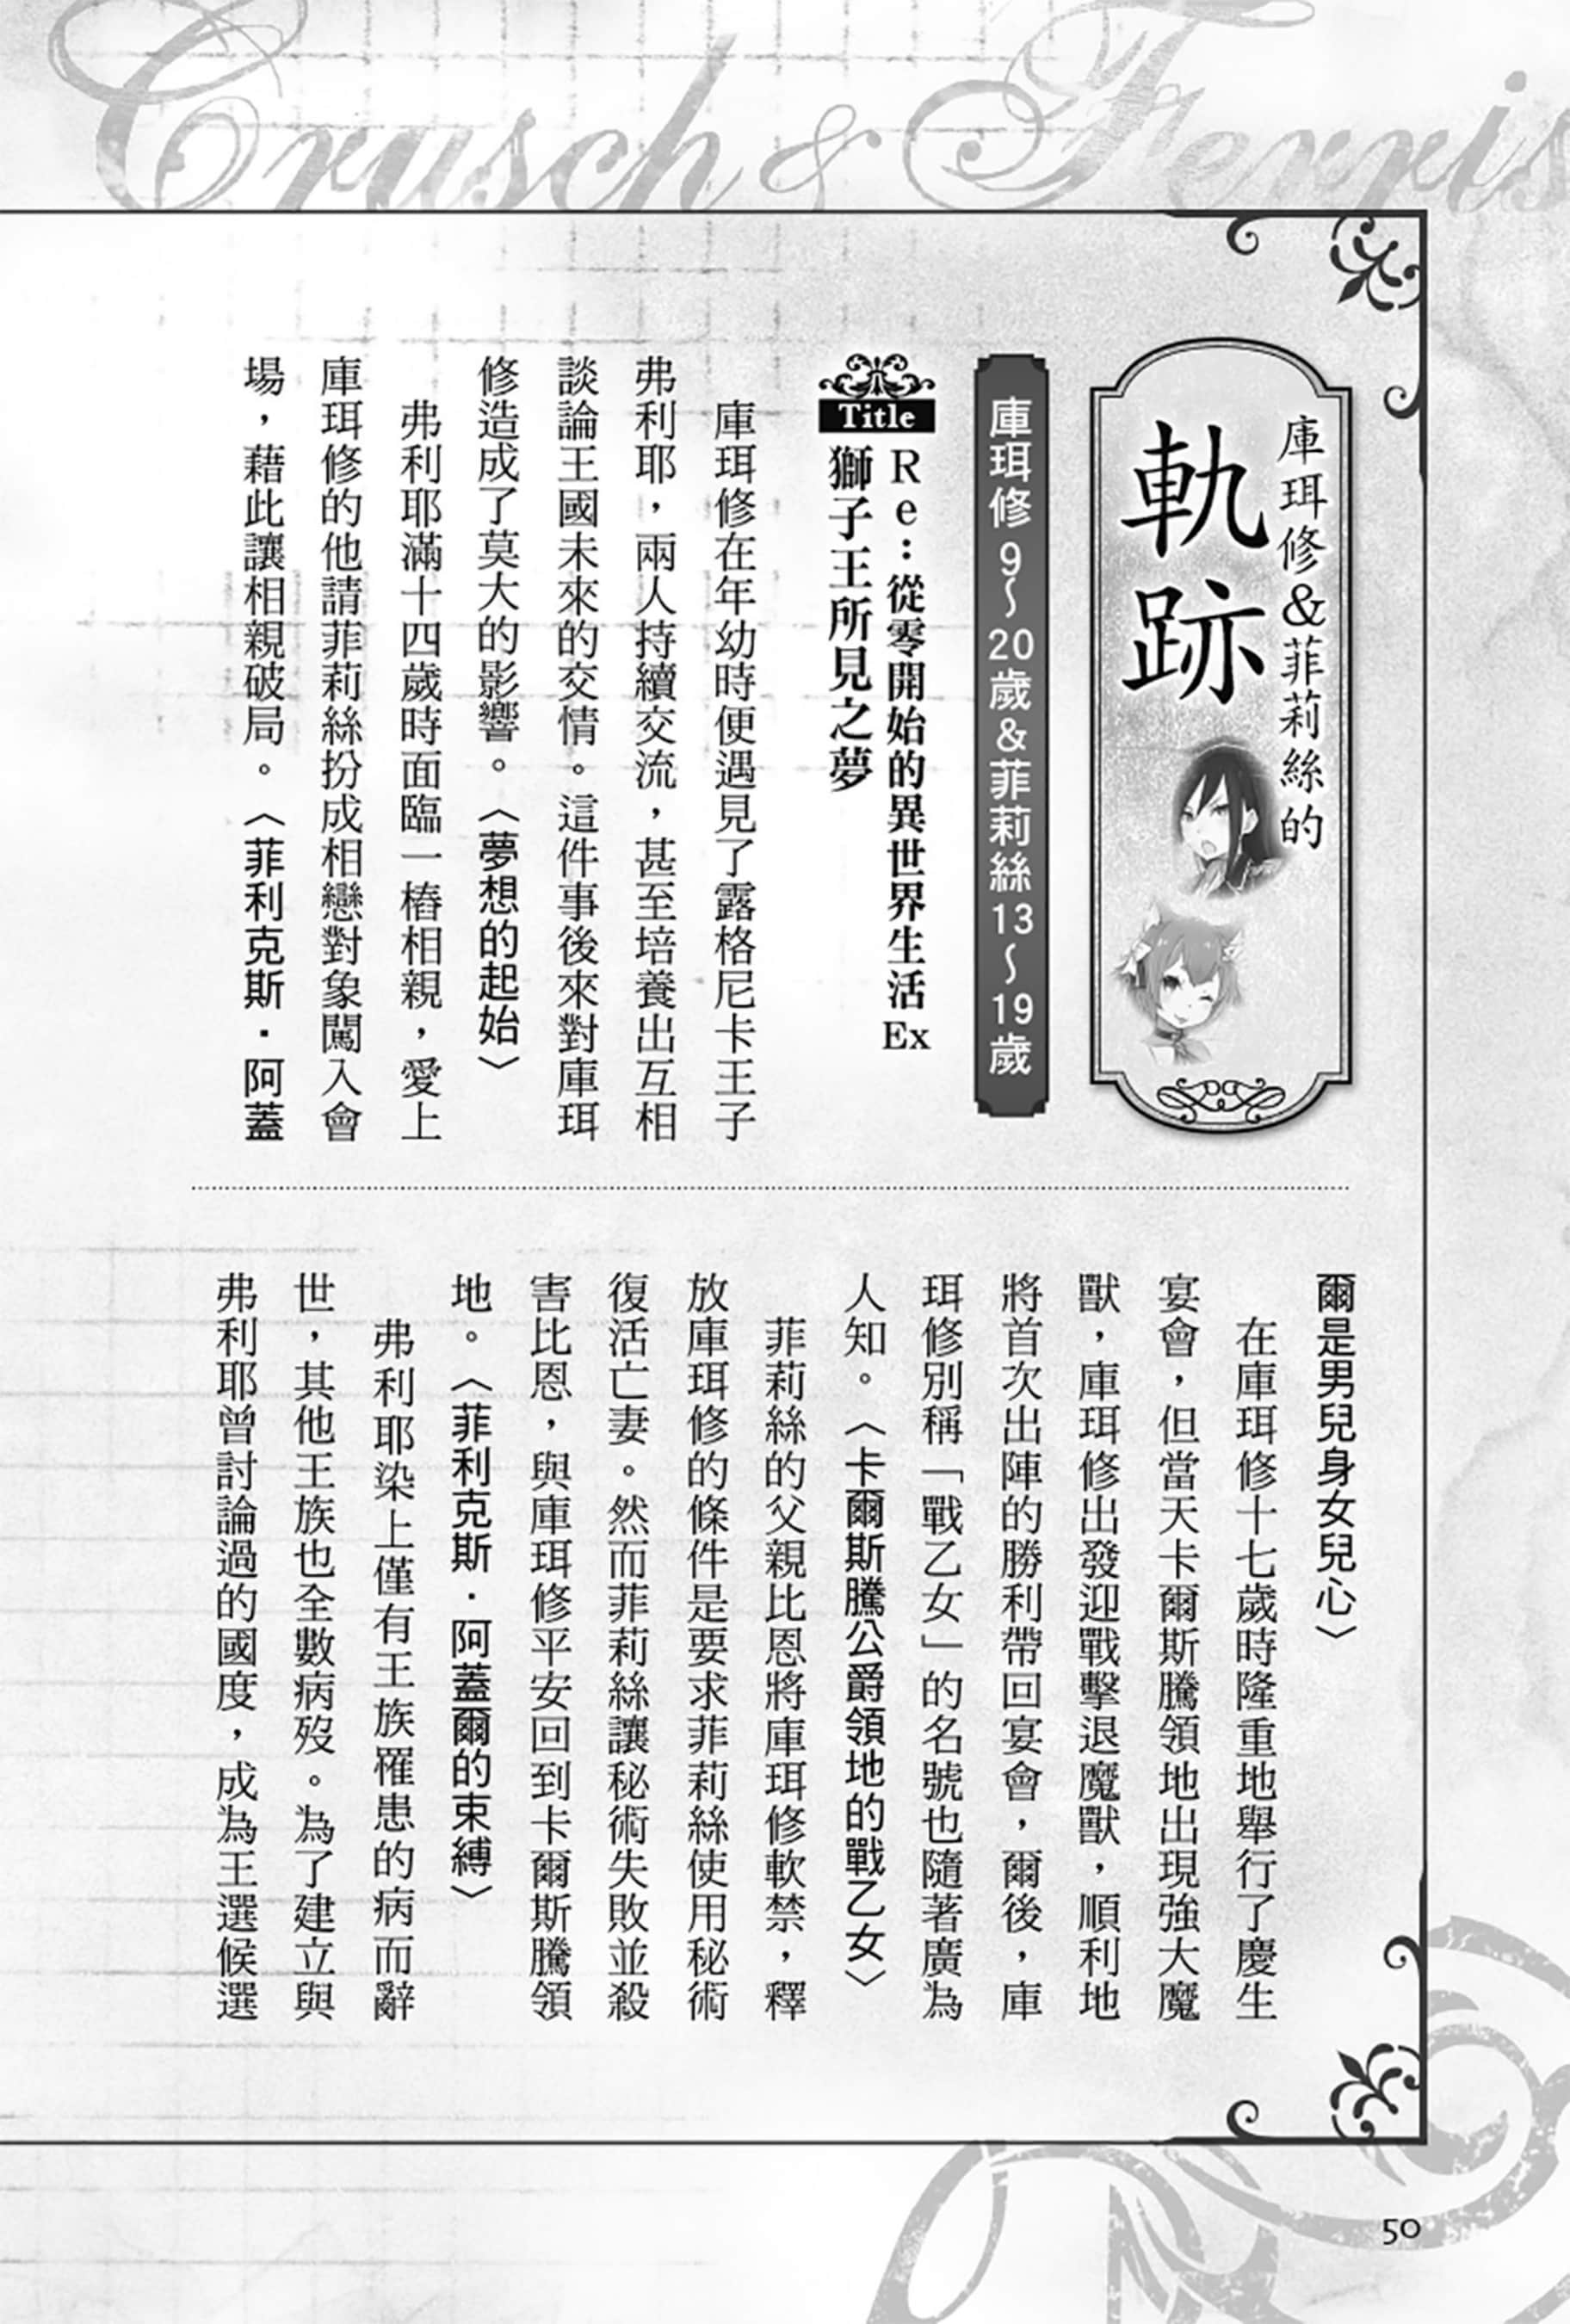 Crusch & Ferris
庫珥修&菲莉絲的
軌跡
庫珥修9～20歲&菲莉絲13～19歲
Title
Re：從零開始的異世界生活Ex
獅子王所見之夢
庫珥修在年幼時便遇見了露格尼卡王子
弗利耶，兩人持續交流，甚至培養出互相
談論王國未來的交情。這件事後來對庫珥
修造成了莫大的影響。〈夢想的起始〉
弗利耶滿十四歲時面臨一樁相親，愛上
庫珥修的他請菲莉絲扮成相戀對象闖入會
場，藉此讓相親破局。〈菲利克斯．阿蓋
爾是男兒身女兒心〉
在庫珥修十七歲時隆重地舉行了慶生
宴會，但當天卡爾斯騰領地出現強大魔
獸，庫珥修出發迎戰擊退魔獸，順利地
將首次出陣的勝利帶回宴會，爾後，庫
珥修別稱「戰乙女」的名號也隨著廣為
人知。〈卡爾斯騰公爵領地的戰乙女〉
菲莉絲的父親比恩將庫珥修軟禁，釋
放庫珥修的條件是要求菲莉絲使用秘術
復活亡妻。然而菲莉絲讓秘術失敗並殺
害比恩，與庫珥修平安回到卡爾斯騰領
地。〈菲利克斯．阿蓋爾的束縛〉
弗利耶染上僅有王族罹患的病而辭
世，其他王族也全數病歿。為了建立與
弗利耶曾討論過的國度，成為王選候選
50